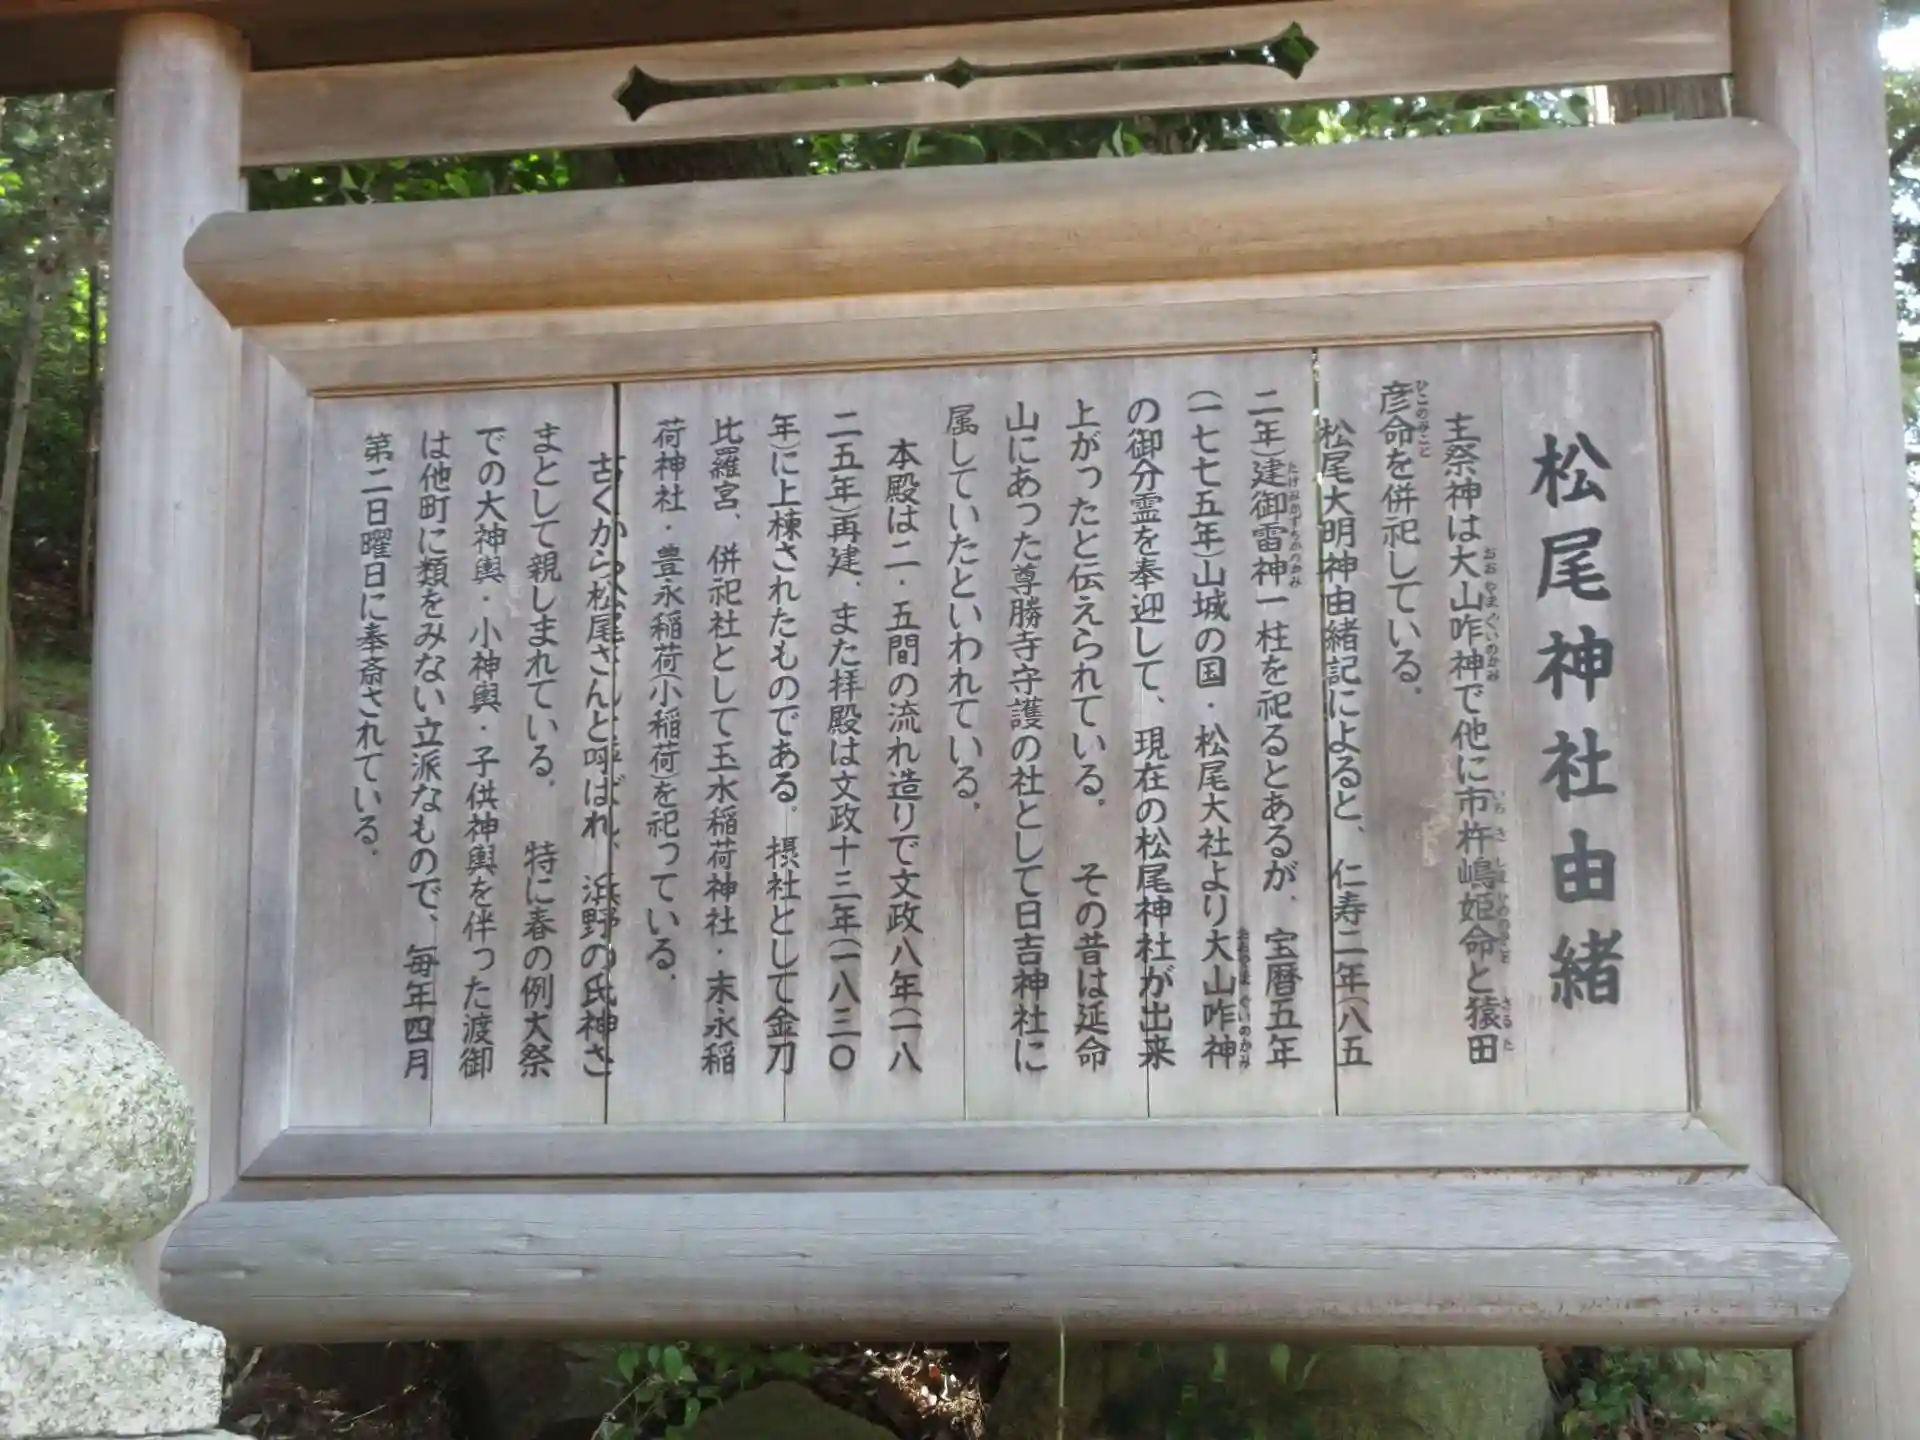 松尾神社由緒
主祭神は大山咋神で他に市杵嶋姫命と猿田
彦命を併祀している。
松尾大明神由緒記によると、仁寿二年(八五
二年)建御雷神一柱を祀るとあるが、宝暦五年
(一七七五年)山城の国・松尾大社より大山咋神
の御分霊を奉迎して、現在の松尾神社が出来
上がったと伝えられている。その昔は延命
山にあった尊勝寺守護の社として日吉神社に
属していたといわれている。
本殿は二・五間の流れ造りで文政八年(一八
二五年)再建、また拝殿は文政十三年(一八三〇
年)に上棟されたものである。摂社として金刀
比羅宮、併祀社として玉水稲荷神社・末永稲
荷神社・豊永稲荷(小稲荷)を祀っている。
古くから松尾さんと呼ばれ、浜野の氏神さ
まとして親しまれている。特に春の例大祭
での大神輿・小神輿・子供神輿を伴った渡御
は他町に類をみない立派なもので、毎年四月
第二日曜日に奉斎されている。